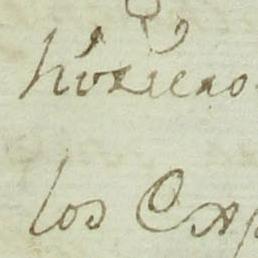 hiziero
los Exp